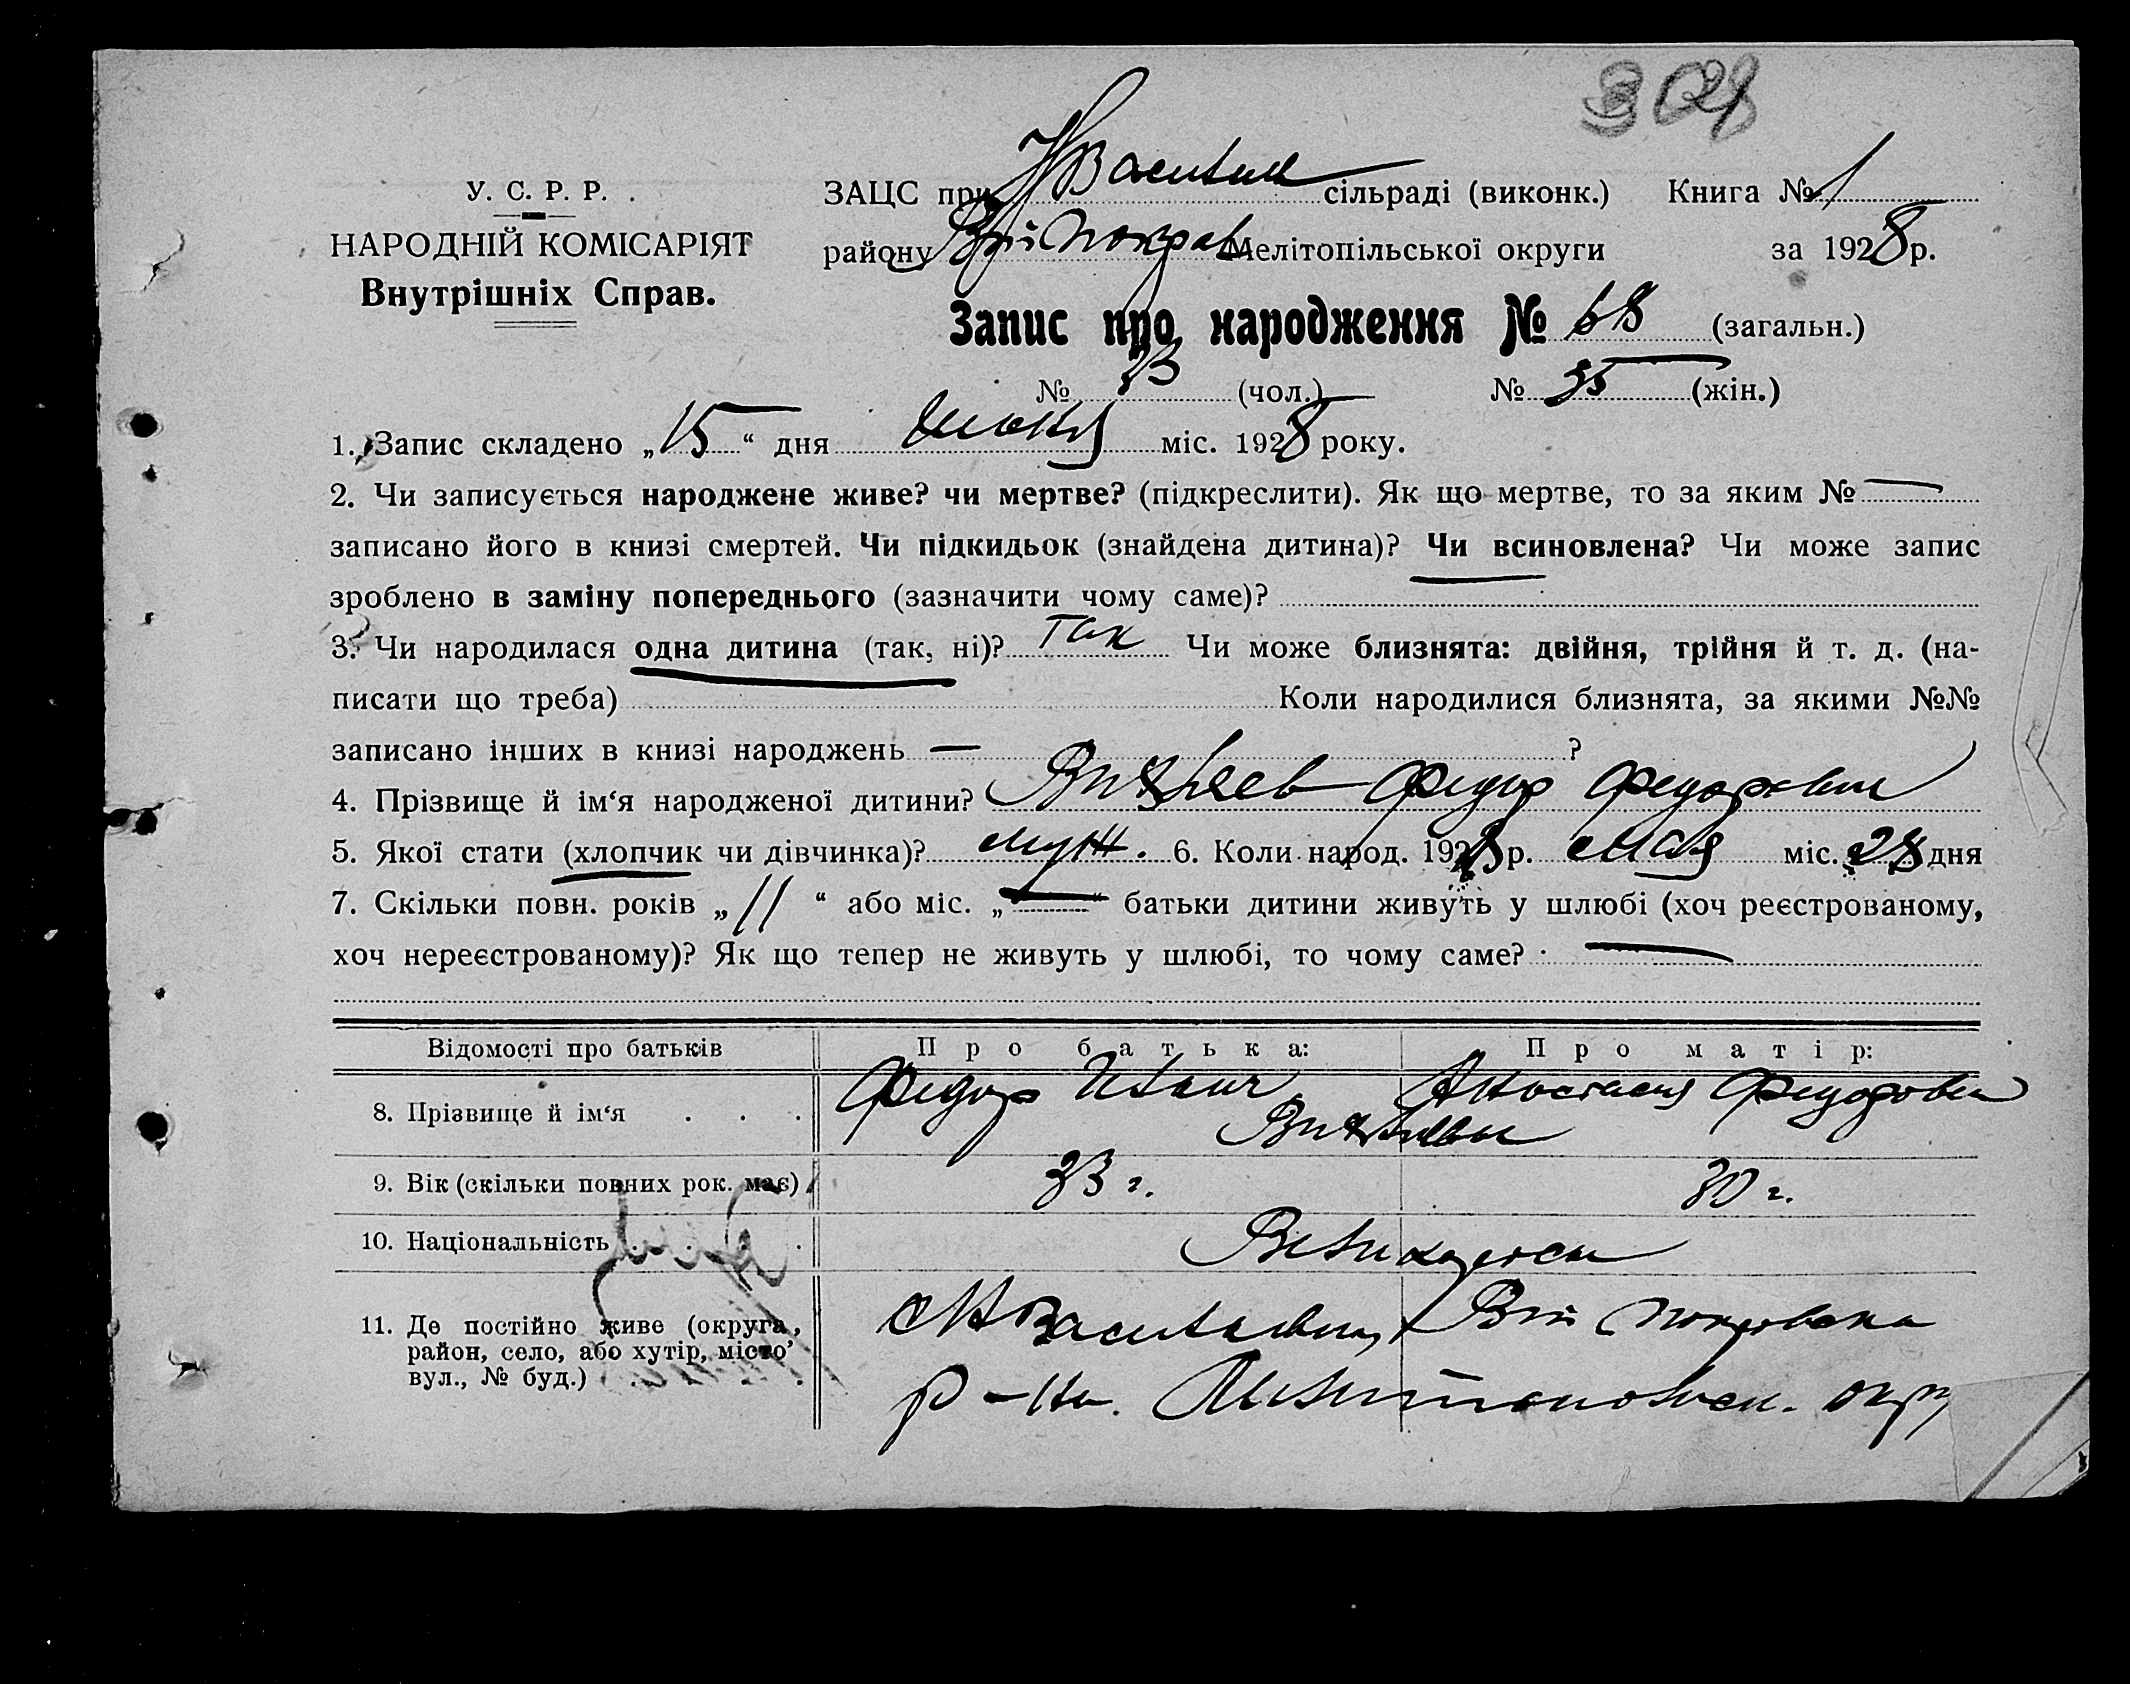 308
У. С. Р. Р.
НАРОДНІЙ КОМІСАРІЯТ
Внутрішніх Справ.
ЗАЦС при НВасильев сільраді (виконк.) Книга № 1
району Вт. Покров Мелітопільської округи за 1928 р.
Запис про народження № 68 (загальн.)
№ 33 (чол.) № 35 (жін.)
1. Запис складено „15“ дня июня міс. 1928 року.
2. Чи записується народжене живе? чи мертве? (підкреслити). Як що мертве, то за яким № —
записано його в книзі смертей. Чи підкидьок (знайдена дитина)? Чи всиновлена? Чи може запис
зроблено в заміну попереднього (зазначити чому саме)?
3. Чи народилася одна дитина (так, ні)? так Чи може близнята: двійня, трійня й т. д. (на-
писати що треба) Коли народилися близнята, за якими №№
записано інших в книзі народжень — ?
4. Прізвище й ім‘я народженої дитини? Федор Федорович
5. Якої стати (хлопчик чи дівчинка)? муж. 6. Коли народ. 1928 р. мая міс. 28 дня
7. Скільки повн. років „11“ або міс. „—“ батьки дитини живуть у шлюбі (хоч реєстрованому,
хоч нереєстрованому)? Як що тепер не живуть у шлюбі, то чому саме? —
Відомості про батьків Про батька: Про матір:
8. Прізвище й ім‘я Федор Иванич Анастасия Федоровна
9. Вік (скільки повних рок. має) 33 г. 30 г.
10. Національність Великороссы
11. Де постійно живе (округа,
район, село, або хутір, місто
вул., № буд.)
с НВасильевка, Вт Покровска
р-на. Мелитопольск. окр